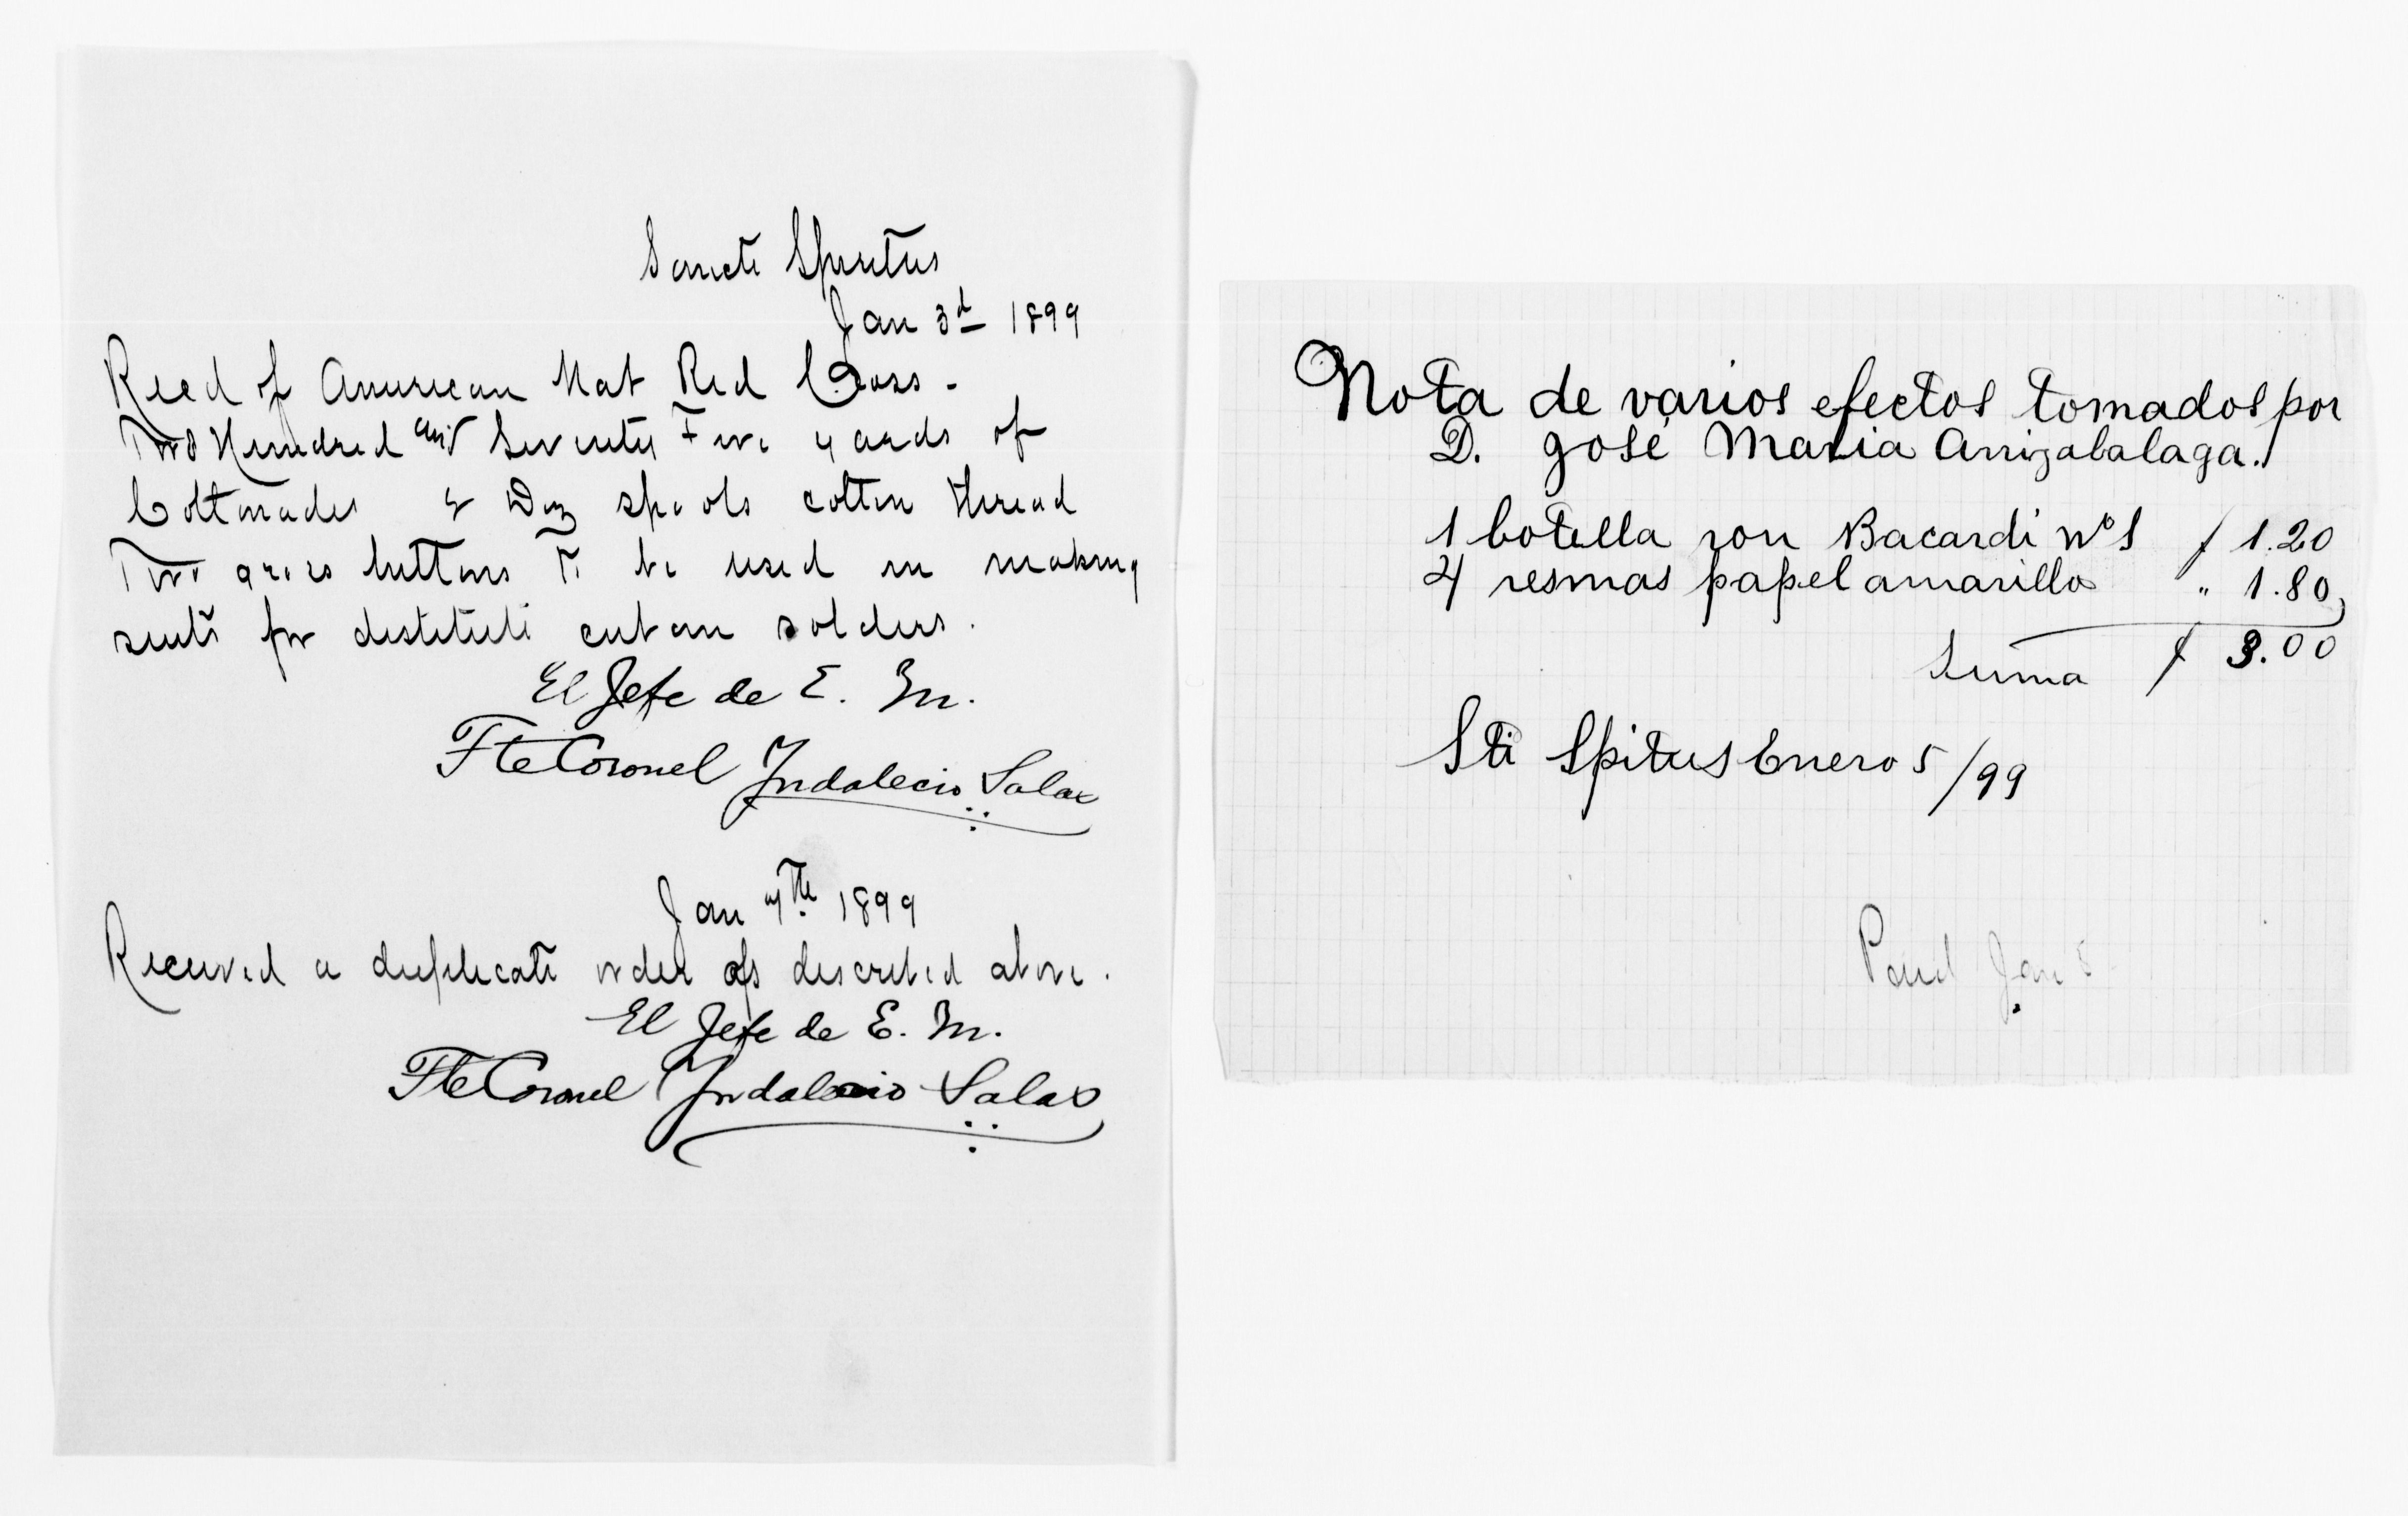 Sancti Spiritus
Jan 3d 1899
Recd of American Nat Red Cross -
Two Hundred and Seventy Five yards of
Cottonades & Doz spools cotton thread
Two gross buttons To be used in making
suits for destitute cuban solders.
El Jefe de E. M.
Tte Coronel Indalecio Salas
Jan 7th 1899
Received a duplicate order as described above.
El Jefe de E. M.
Tte Coronel Indalecio Salas
Nota de varios efectos tomados por
D. José Maria Arrizabalaga.
1 botella ron Bacardi No 1 $ 1.20
4 resmas papel amarillo " 1.80
Suma $ 3.00
Sti Spitus Enero 5/99
Paid Jan